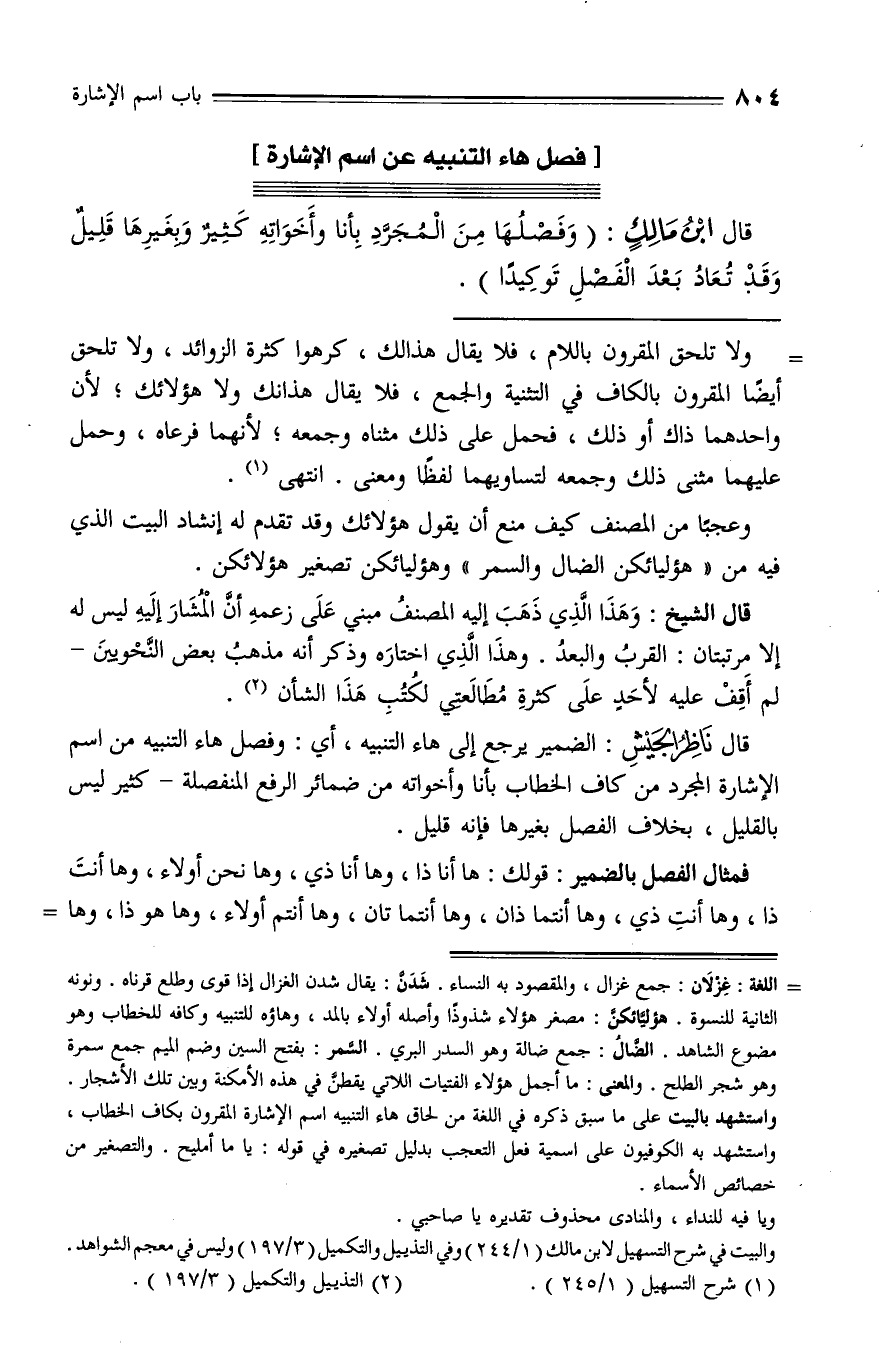 ٨٠٤ باب اسم الإشارة
[ فصل هاء التنبيه عن اسم الإشارة ]
قال ابْنُ مَالِكٍ : ( وَفَصْلُهَا مِنَ الْمُجَرَّدِ بِأَنا وأَخَوَاتِهِ كَثِيرٌ وَبِغَيرِهَا قَلِيلٌ
وَقَدْ تُعَادُ بَعْدَ الْفَصْلِ تَوكِيدًا ) .
= ولا تلحق المقرون باللام ، فلا يقال هذالك ، كرهوا كثرة الزوائد ، ولا تلحق
أيضًا المقرون بالكاف في التثنية والجمع ، فلا يقال هذانك ولا هؤلائك ؛ لأن
واحدهما ذاك أو ذلك ، فحمل على ذلك مثناه وجمعه ؛ لأنهما فرعاه ، وحمل
عليهما مثنى ذلك وجمعه لتساويهما لفظًا ومعنى . انتهى (١) .
وعجبًا من المصنف كيف منع أن يقول هؤلائك وقد تقدم له إنشاد البيت الذي
فيه من « هؤليائكن الضال والسمر » وهؤليائكن تصغير هؤلائكن .
قال الشيخ : وَهَذَا الَّذِي ذَهَبَ إليه المصنفُ مبني عَلَى زعمهِ أنَّ الْمُشَارَ إلَيهِ ليس له
إلا مرتبتان : القربُ والبعدُ . وهذا الَّذِي اختارَه وذكر أنه مذهبُ بعض النَّحْويينَ -
لم أَقِفْ عليه لأحَدٍ علَى كثرةِ مُطَالَعتِي لكُتُبِ هَذَا الشأن (٢) .
قال نَاظِرُ الجَيْشِ : الضمير يرجع إلى هاء التنبيه ، أي : وفصل هاء التنبيه من اسم
الإشارة المجرد من كاف الخطاب بأنا وأخواته من ضمائر الرفع المنفصلة - كثير ليس
بالقليل ، بخلاف الفصل بغيرها فإنه قليل .
فمثال الفصل بالضمير : قولك : ها أنا ذا ، وها أنا ذي ، وها نحن أولاء ، وها أنتَ
ذا ، وها أنتِ ذي ، وها أنتما ذان ، وها أنتما تان ، وها أنتم أولاء ، وها هو ذا ، وها =
= اللغة : غِزْلَان : جمع غزال ، والمقصود به النساء . شَدَنَّ : يقال شدن الغزال إذا قوى وطلع قرناه . ونونه
الثانية للنسوة . هؤليَّائكنَّ : مصغر هؤلاء شذوذًا وأصله أولاء بالمد ، وهاؤه للتنبيه وكافه للخطاب وهو
مضوع الشاهد . الضَّالُ : جمع ضالة وهو السدر البري . السَّمر : بفتح السين وضم الميم جمع سمرة
وهو شجر الطلح . والمعنى : ما أجمل هؤلاء الفتيات اللاتي يقطنَّ في هذه الأمكنة وبين تلك الأشجار .
واستشهد بالبيت على ما سبق ذكره في اللغة من لحاق هاء التنبيه اسم الإشارة المقرون بكاف الخطاب ،
واستشهد به الكوفيون على اسمية فعل التعجب بدليل تصغيره في قوله : يا ما أمليح . والتصغير من
خصائص الأسماء .
ويا فيه للنداء ، والمنادى محذوف تقديره يا صاحبي .
والبيت في شرح التسهيل لابن مالك ( ٢٤٤/١ ) وفي التذييل والتكميل ( ١٩٧/٣ ) وليس في معجم الشواهد .
(١) شرح التسهيل ( ٢٤٥/١ ) . (٢) التذييل والتكميل ( ١٩٧/٣ ) .